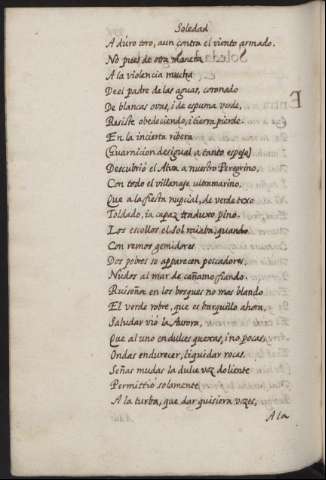 Soledad
A duro toro, aun contra el viento armado.
No pues de otra manera
A la violencia mucha
Del padre de las aguas, coronado
De blancas ovas, i de espuma verde,
Resiste obedeciendo, i tierra pierde.
En la incierta ribera
(Guarnicion desigual a tanto espejo)
Descubrió el Alva a nuestro Peregrino,
Con todo el villanage ultramarino,
Que a la fiesta nupcial, de verde texo
Toldado, ia capaz traduxo pino.
Los escollos el Sol raiaba, quando
Con remos gemidores
Dos pobres se aparecen pescadores,
Nudos al mar de cañamo fiando.
Ruiseñor en los bosques no mas blando
El verde robre, que es barquillo ahora,
Saludar vió la Aurora,
Que al uno en dulces quexas, i no pocas,
Ondas endurecer, liquidar rocas.
Señas mudas la dulce voz doliente
Permittió solamente
A la turba, que dar quisiera vozes,
A la